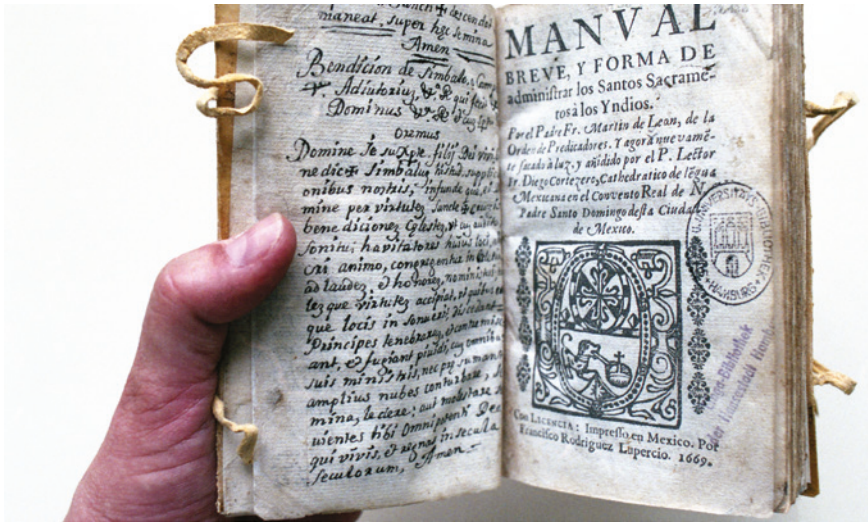 maneat, super hęc semina
Amen
Bendicion de simbalo, y Camp
Adiutoriuz, qui fecit
Dominus
Oremus
Domine Ie su Xpte filij Dei vivi,
ne dic simbaluz
onibus nostris, infunde
mine per virtutez Sancte
bene dicionez Cęlestez, et cuz
sonitu; havitatores huius loci,
cri animo, congregentur in
ad laudez, et honorez, nomini
lez que virtutez accipiat, et
que locis in sonuerit, discedant
Principes tenebrarez, et contre mis
ant, et fugiant pauidi, cuz omnibus
suis ministris, nec
amplius nubes conturbare,
mina, ledere; aut molestare
uientes tibi Omnipotenti Deo
qui vivis, et regnas in secula
seculorum, Amen
MANVAL
BREVE, Y FORMA DE
adminiſtrar los Santos Sacramē-
tos à los Yndios.
Por el Padre Fr. Martin de Leon, de la
Orden de Predicadores. Y agora nuevamē-
te ſacado à luz, y añidido por el P. Lector
Fr. Diego Cortezero, Cathedratico de lēgua
Mexicana en el Convento Real de N.
Padre Santo Domingo deſta Ciudad
de Mexico.
U. UNIVERSITÄTS BIBLIOTHEK
HAMBURG
Con LICENCIA: Impreſſo en Mexico. Por
Franciſco Rodriguez Lupercio. 1669.
Bibliothek
der Hansestadt Hamburg